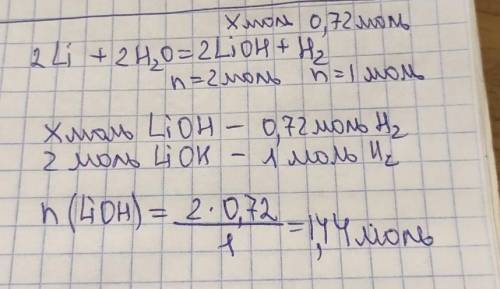 x моль 0,72 моль
2Li + 2H₂O = 2LiOH + H₂
n = 2 моль n = 1 моль
x моль LiOH – 0,72 моль H₂
2 моль LiOH – 1 моль H₂
n(LiOH) = 2·0,72 / 1 = 1,44 моль